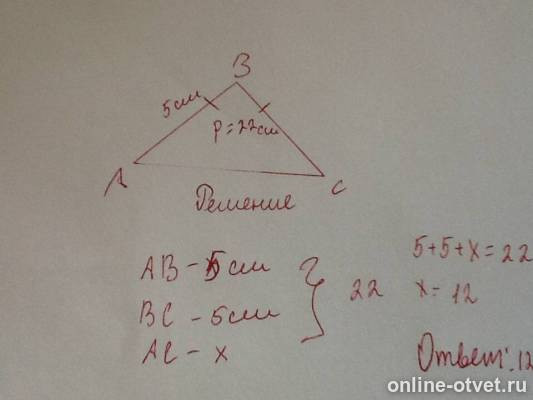 B
5см
P=22см
A
C
Решение
AB - 5см
BC - 5см
AC - x
22
5+5+x=22
x=12
Ответ: 12
online-otvet.ru